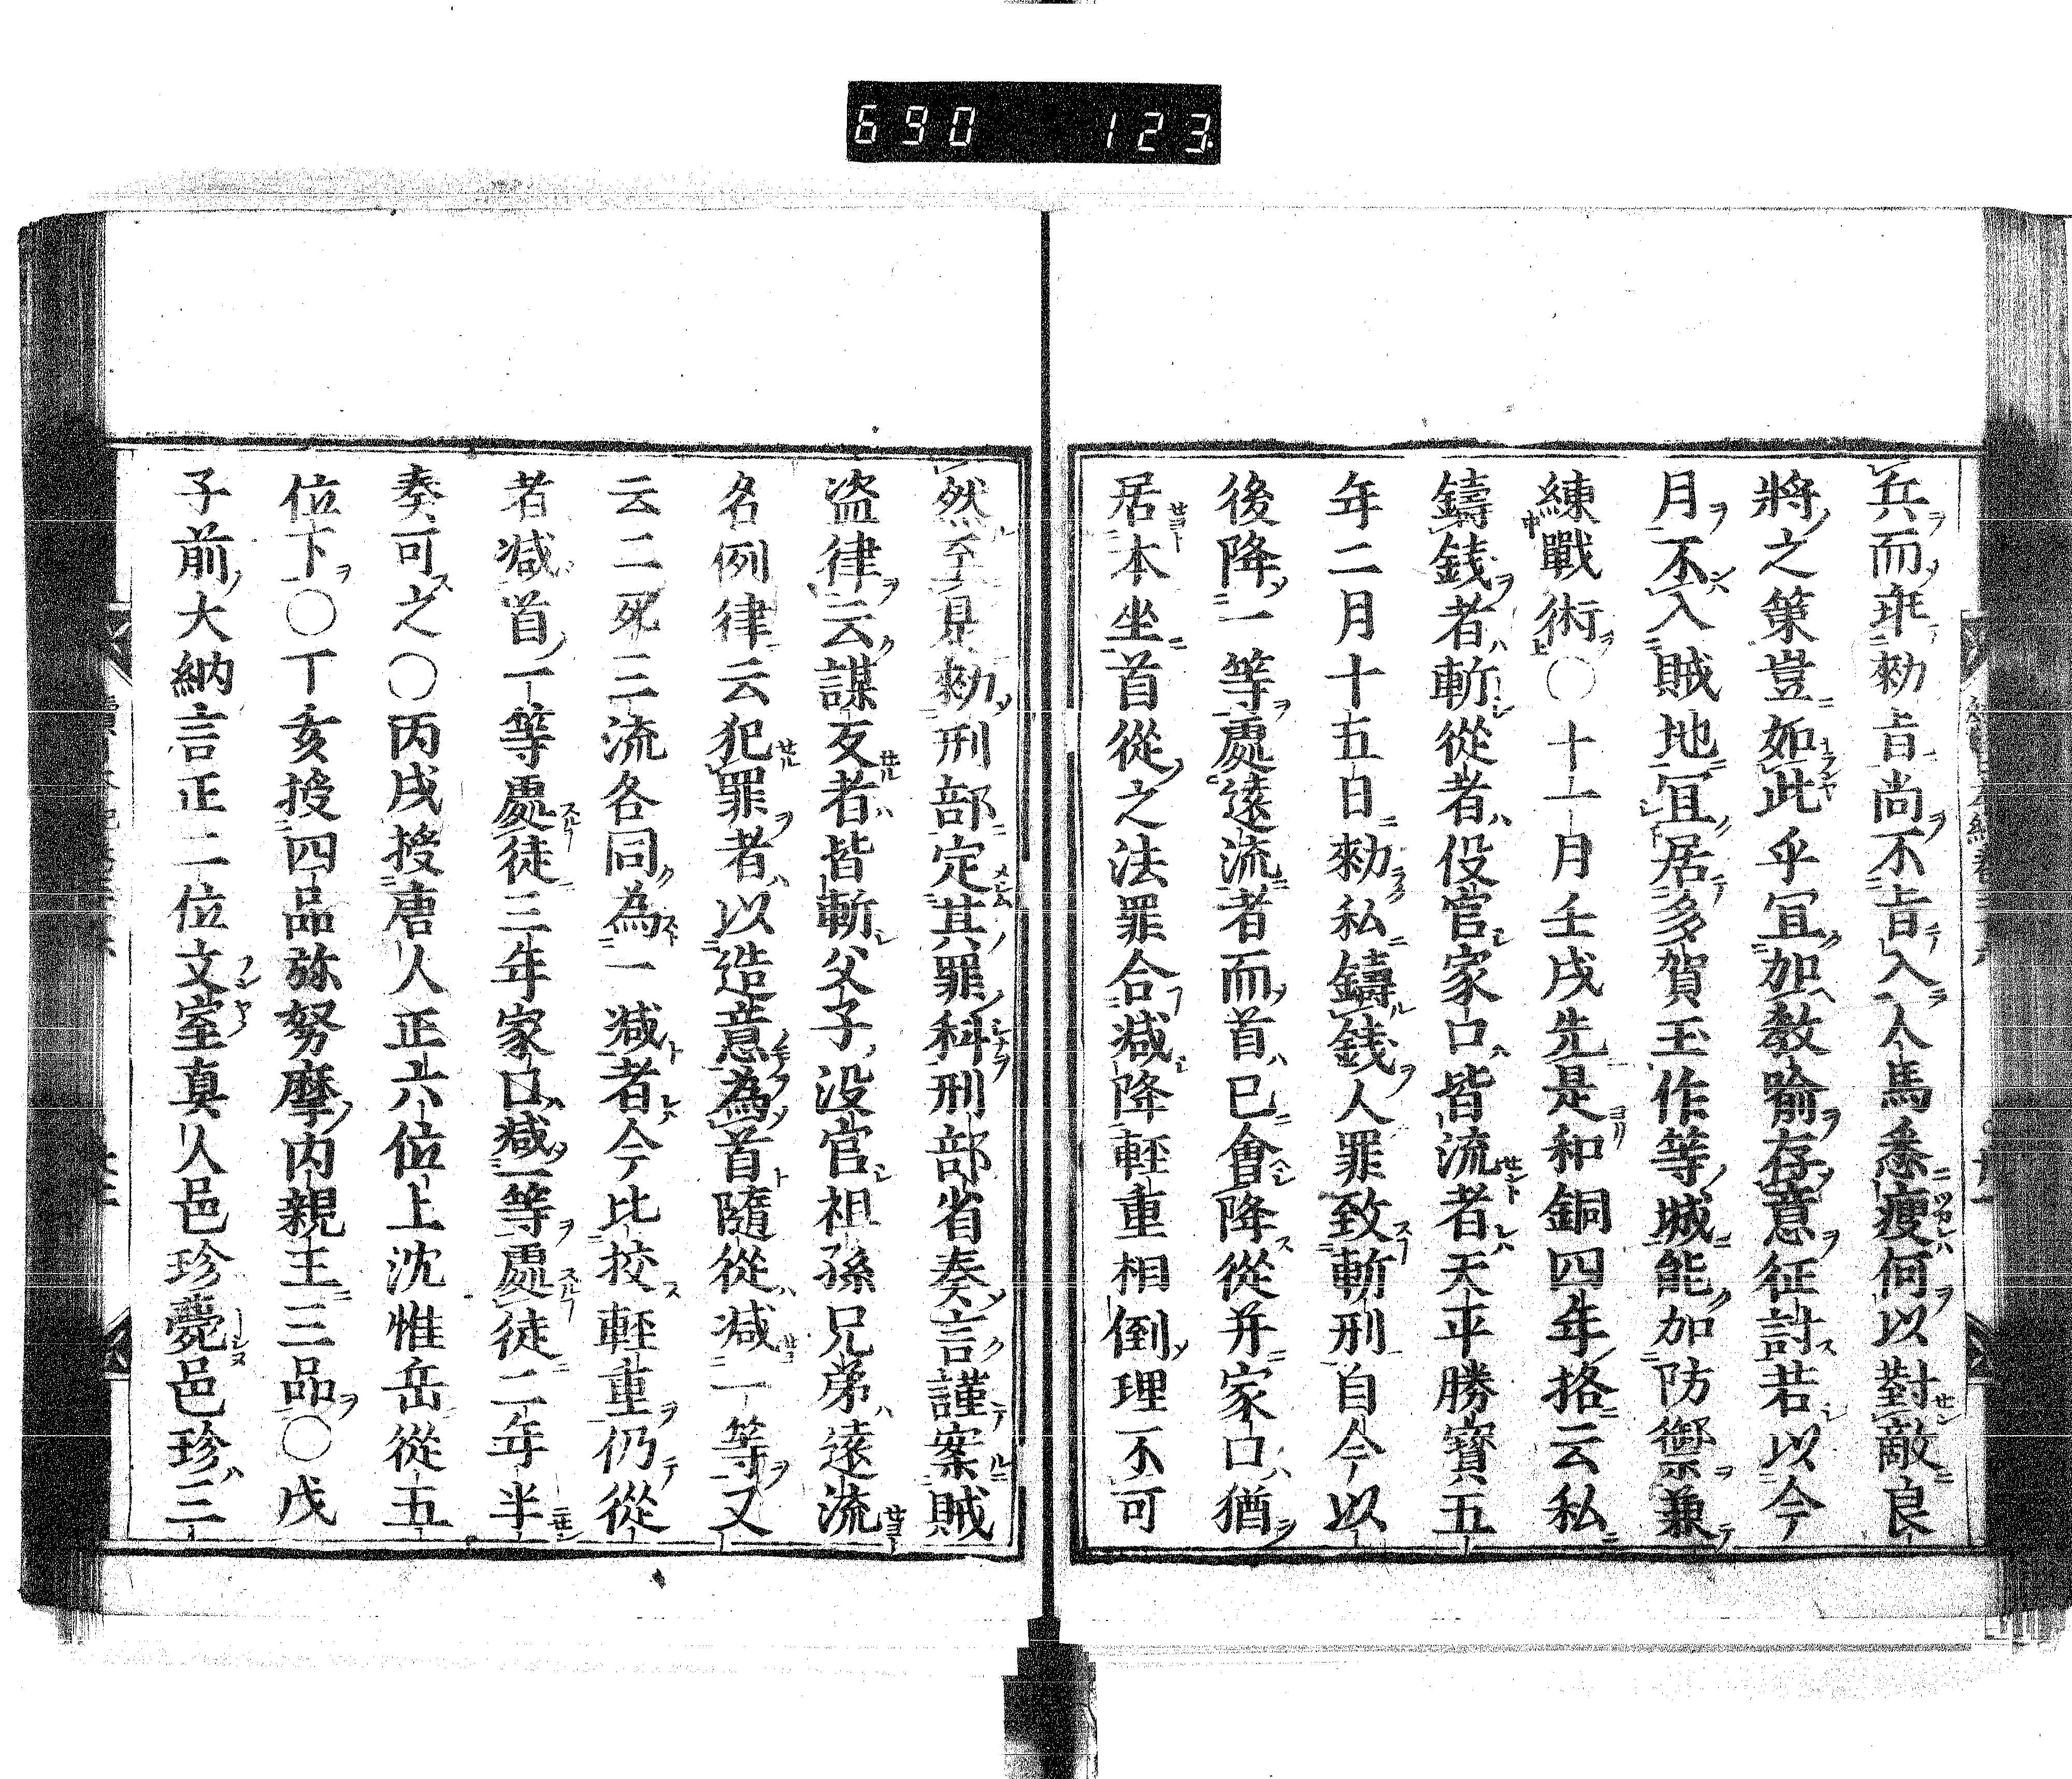 690 123
兵而乖勅旨尚不肯入人馬悉瘦何以對敵良
將之策豈如此乎冝加教喻存意征討若以今
月不入賊地冝居多賀玉作等城能加防禦兼
練戰術〇十一月壬戌先是和銅四年格云私
鑄錢者斬從者伇官家口皆流者天平勝寶五
年二月十五日勅私鑄錢人罪致斬刑自今以
後降一等處遠流者而首已會降從并家口猶
居本坐首從之法罪合减降輕重相倒理不可
然至是勅刑部定其罪科刑部省奏言謹案賊
盗律云謀反者皆斬父子没官祖孫兄弟遠流
名例律云犯罪者以造意為首隨從减一等又
云二死三流各同為一减者今比挍輕重仍從
者减首一等處徒三年家口减一等處徒二年半
奏可之〇丙戌授唐人正六位上沈惟岳從五
位下〇丁亥授四品弥努摩内親王三品〇戊
子前大納言正二位文室真人邑珍薨邑珍三